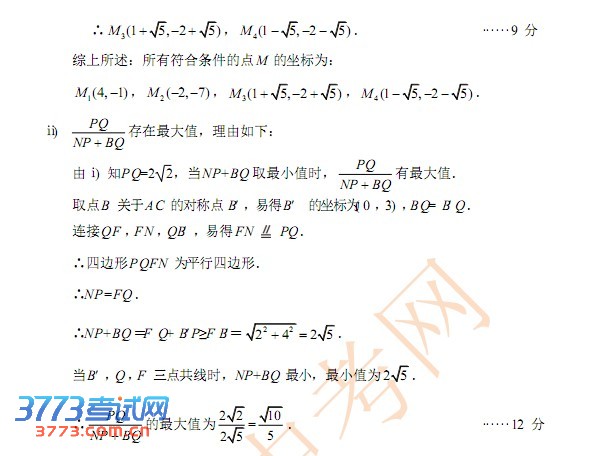 ∴ M₃(1+√5,−2+√5), M₄(1−√5,−2−√5). ······9 分
综上所述：所有符合条件的点M 的坐标为：
M₁(4,−1), M₂(−2,−7), M₃(1+√5,−2+√5), M₄(1−√5,−2−√5).
ii) PQ/(NP+BQ) 存在最大值，理由如下：
由 i) 知PQ=2√2，当NP+BQ 取最小值时，PQ/(NP+BQ) 有最大值．
取点B 关于AC 的对称点 B′，易得B′ 的坐标为(0，3)，BQ= B′Q．
连接QF，FN，QB′，易得FN ∥= PQ．
∴四边形PQFN 为平行四边形．
∴NP=FQ．
∴NP+BQ=F Q+ B′P≥F B′= √(2²+4²) = 2√5．
当B′，Q，F 三点共线时，NP+BQ 最小，最小值为2√5．
∴ PQ/(NP+BQ) 的最大值为 2√2/2√5 = √10/5． ······12 分
3773考试网
3773.com.cn
中考网